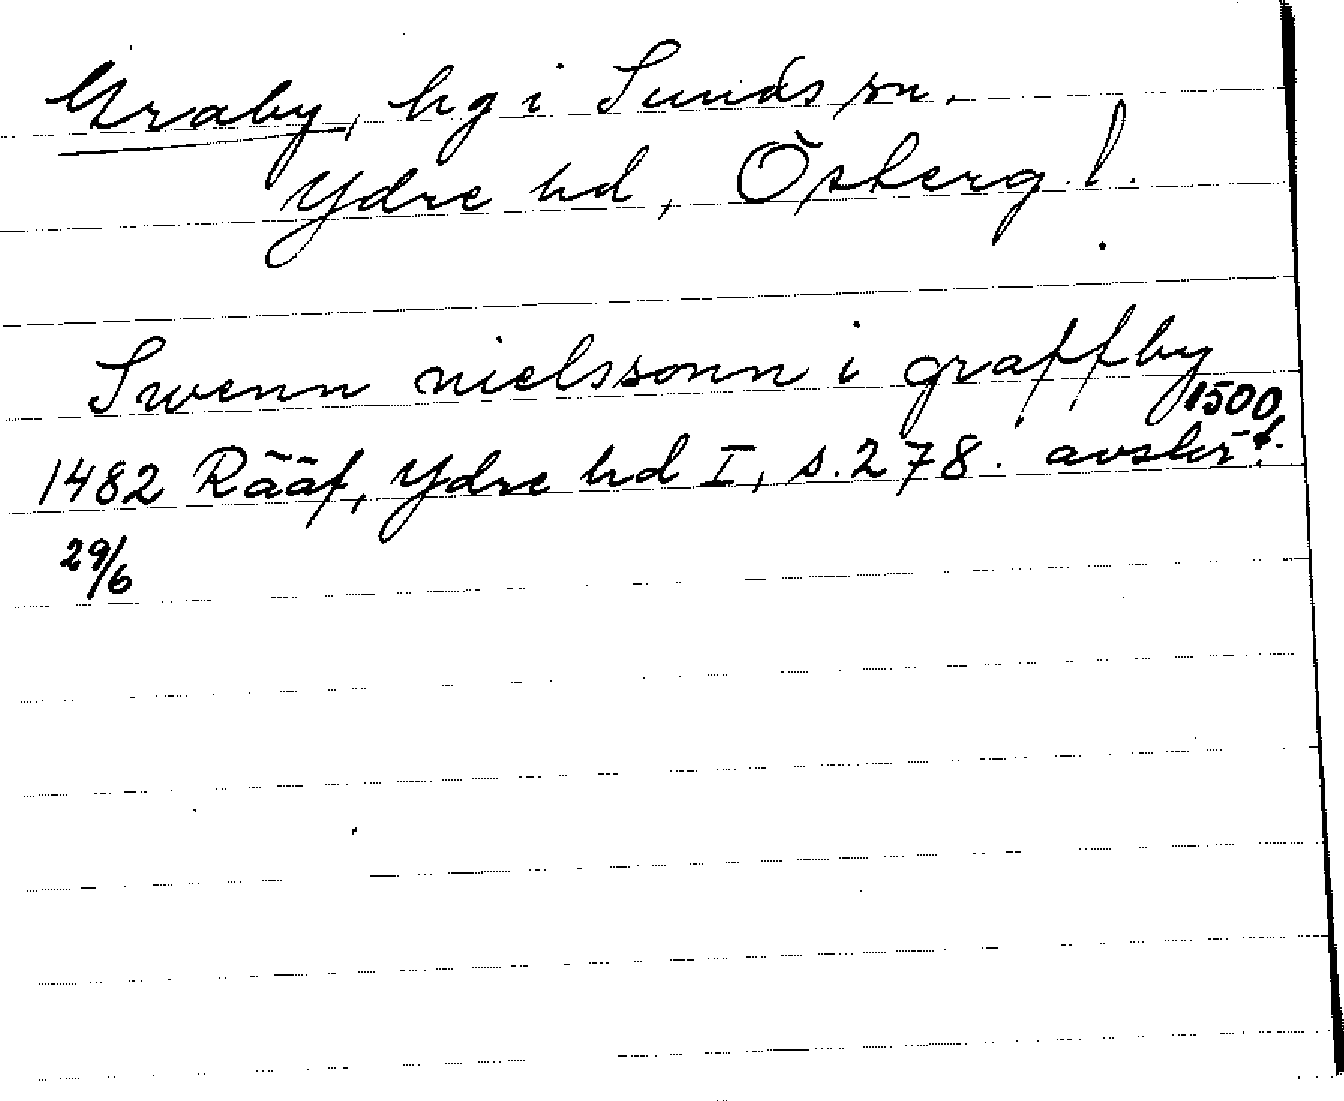 Graby, hg i Sunds sn.
Ydre hd, Östberg. l.
Swenn nielssonn i graffby
1482 Rääf, Ydre hd I, s. 278. avskr. f. 1500
29/6